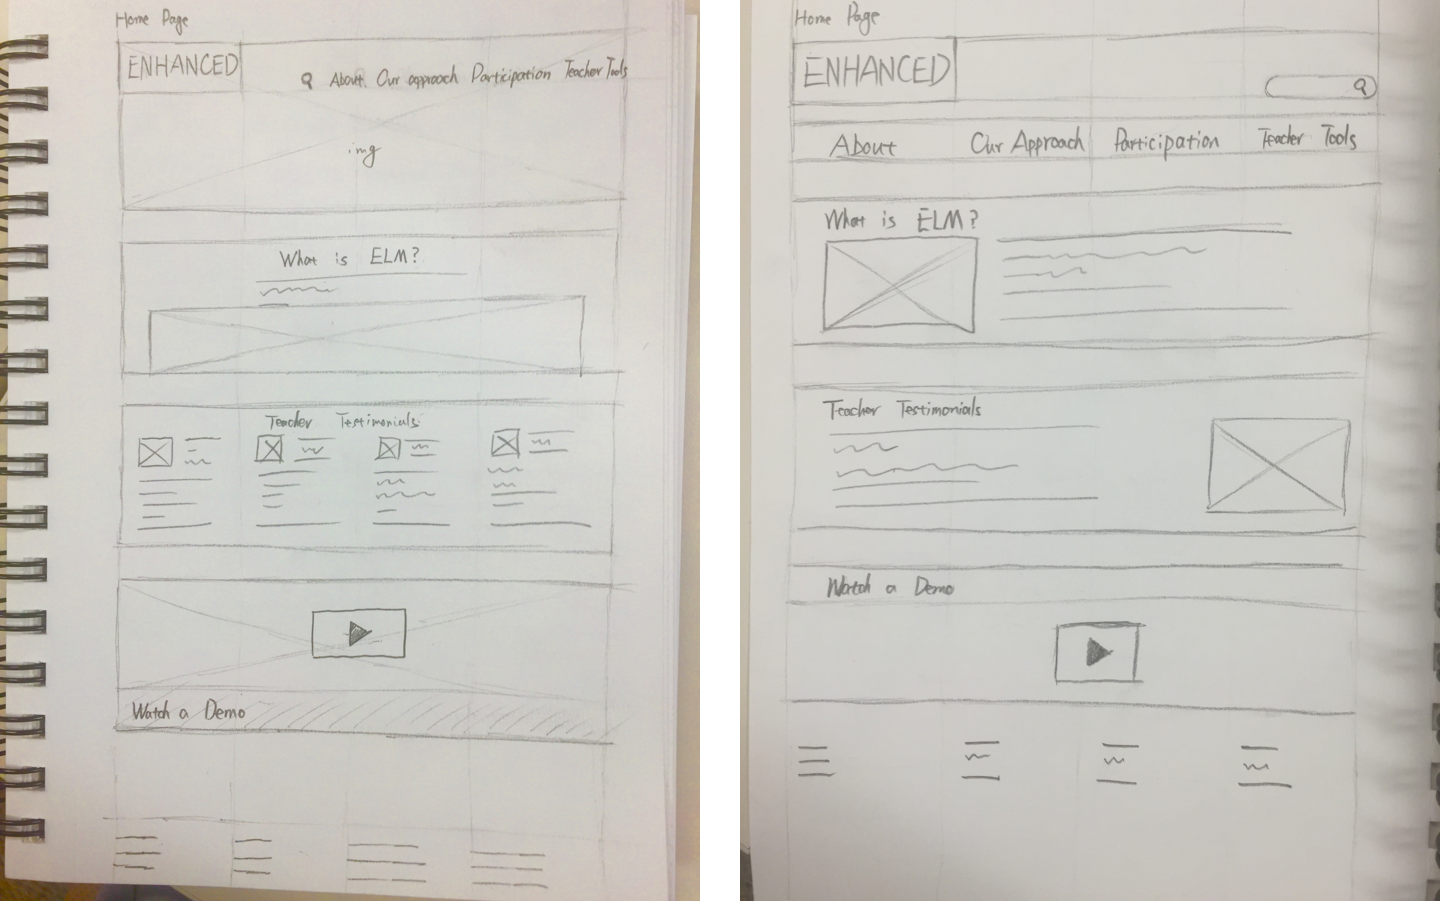 Home Page
ENHANCED
About Our approach Participation Teacher Tools
img
What is ELM?
Teacher Testimonials
Watch a Demo
Home Page
ENHANCED
About Our Approach Participation Teacher Tools
What is ELM?
Teacher Testimonials
Watch a Demo